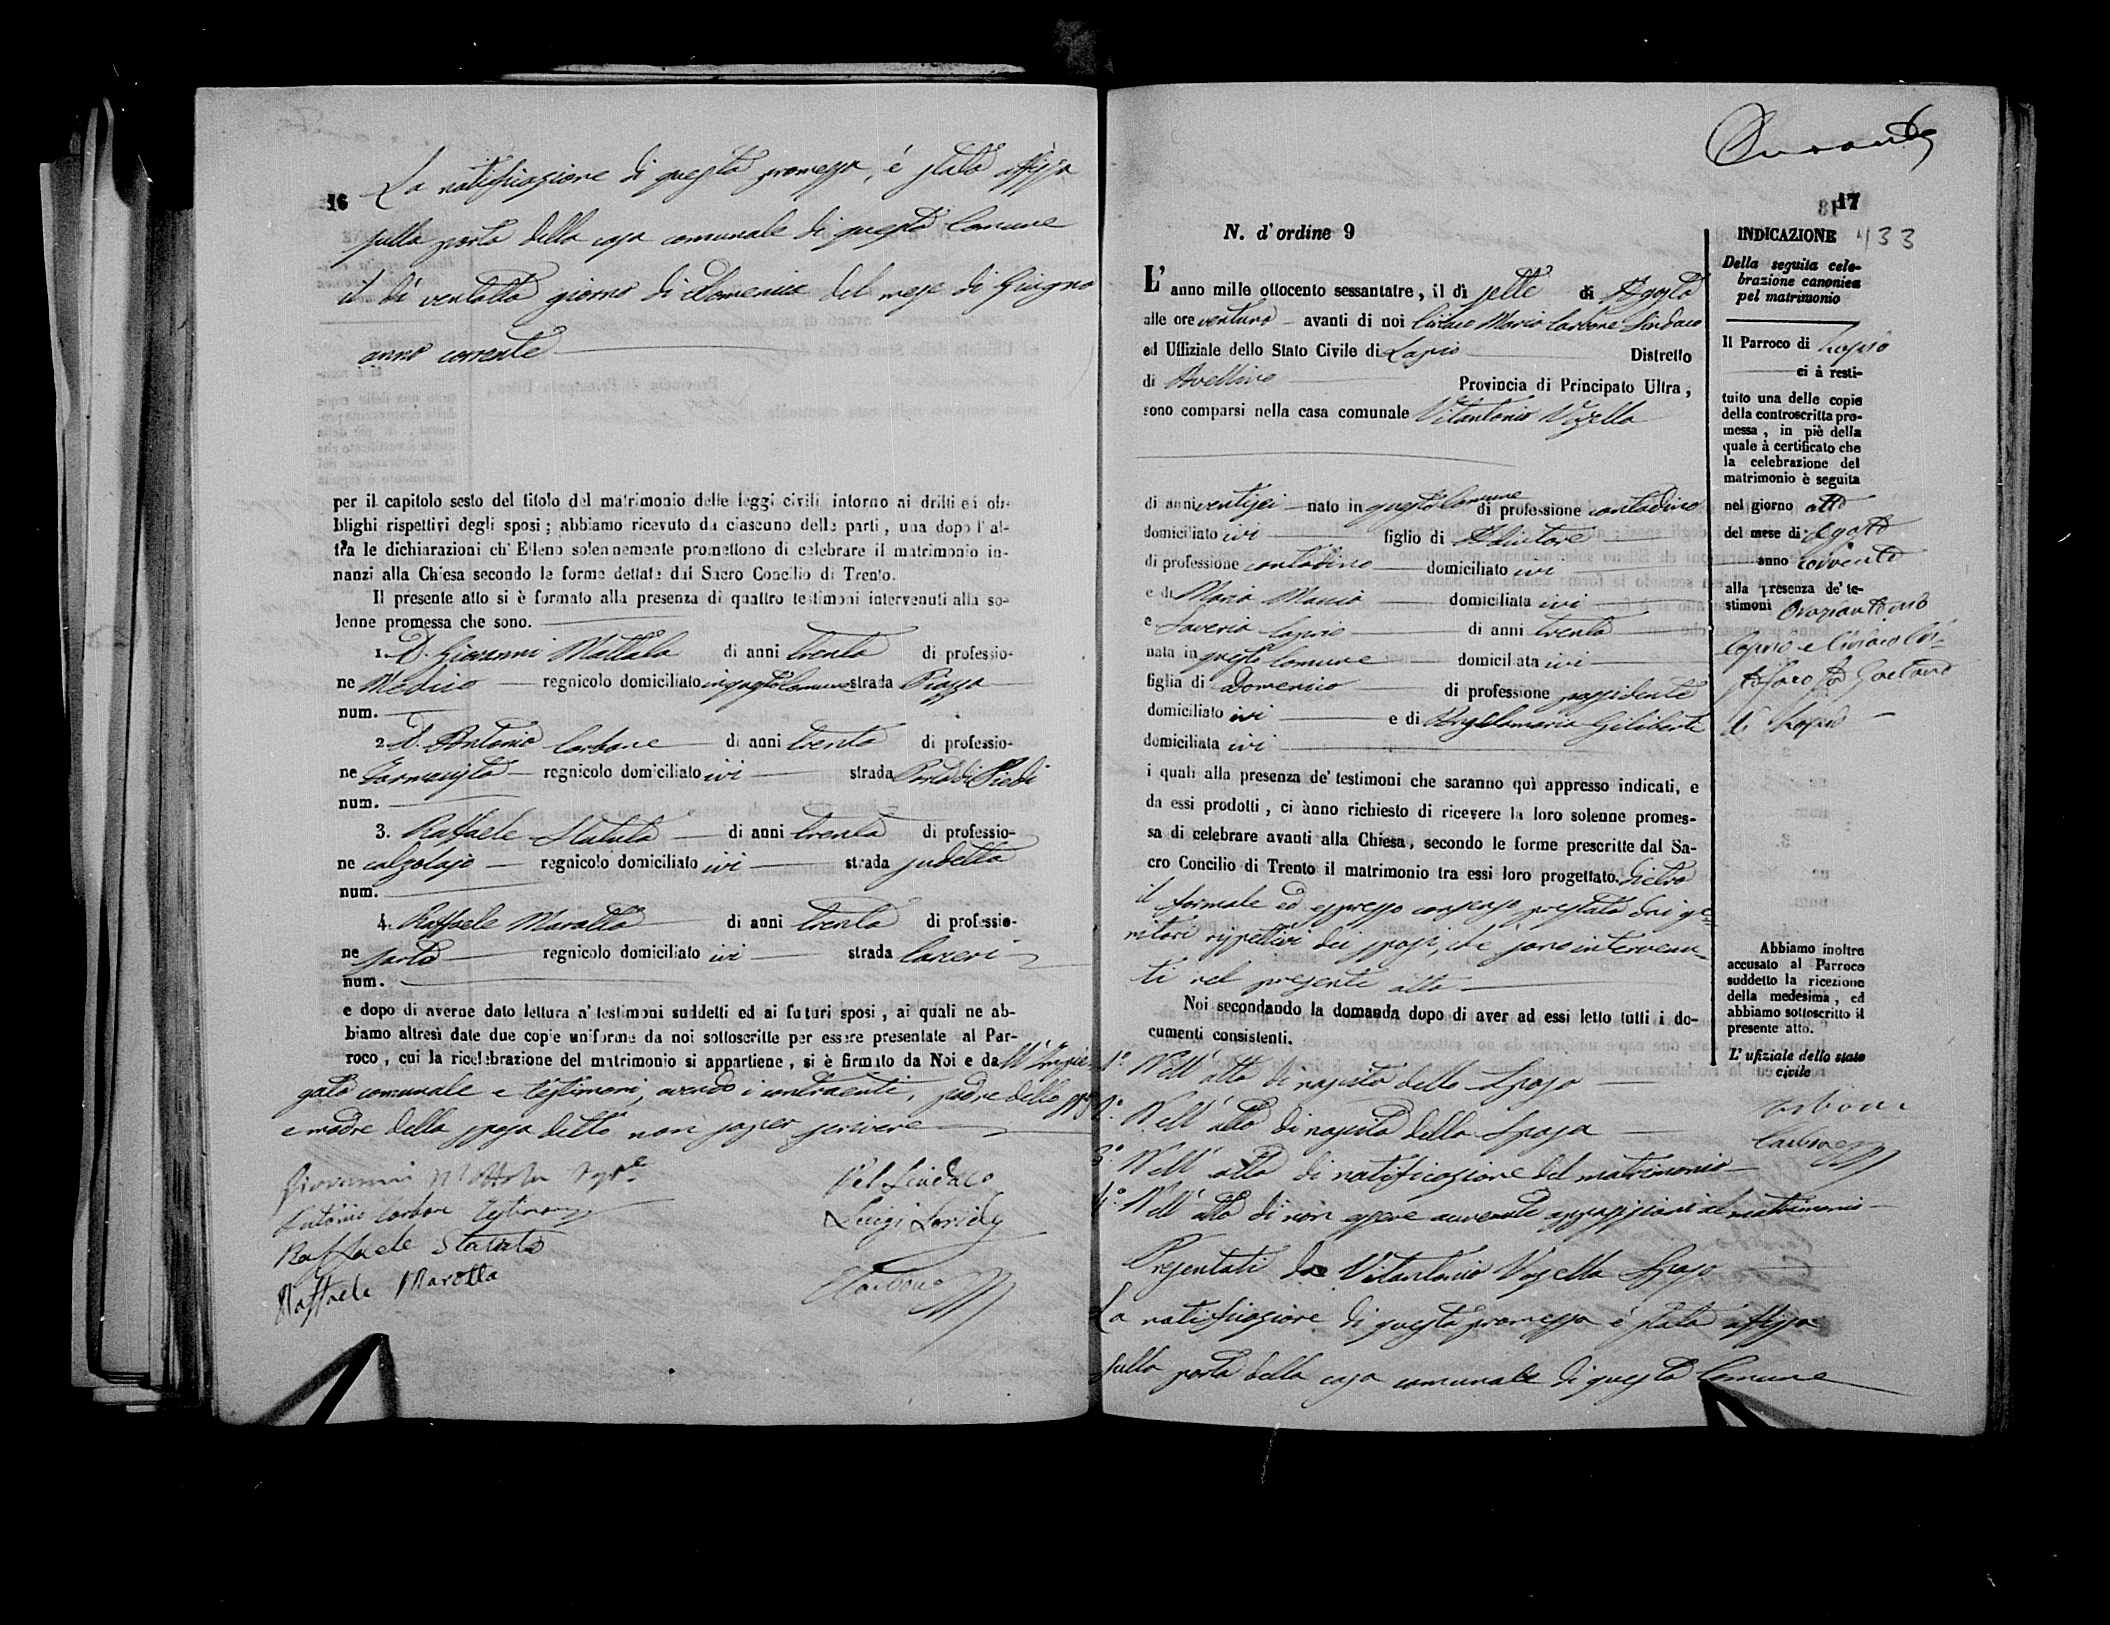 16
La notificazione di questa promessa, è stata affissa
sulla porta della casa comunale di questo Comune
il dì ventotto giorno di Domenica del mese di Giugno
anno corrente
per il capitolo sesto del titolo del matrimonio delle leggi civili intorno ai dritti ed ob-
blighi rispettivi degli sposi; abbiamo ricevuto da ciascuno delle parti, una dopo l'al-
tra le dichiarazioni ch'Elleno solennemente promettono di celebrare il matrimonio in-
nanzi alla Chiesa secondo le forme dettate dal Sacro Concilio di Trento.
Il presente atto si è formato alla presenza di quattro testimoni intervenuti alla so-
lenne promessa che sono.
1. D. Giovanni Mattola di anni trenta di professio-
ne Medico regnicolo domiciliato in questo Comune strada Piazza
num.
2. D. Antonio Carbone di anni trenta di professio-
ne Farmacista regnicolo domiciliato ivi strada
num.
3. Raffaele Statuto di anni trenta di professio-
ne calzolajo regnicolo domiciliato ivi strada
num.
4. Raffaele Marotta di anni trenta di professio-
ne sarto regnicolo domiciliato ivi strada Carceri
num.
e dopo di averne dato lettura a' testimoni suddetti ed ai futuri sposi, ai quali ne ab-
biamo altresì date due copie uniforme da noi sottoscritte per essere presentate al Par-
roco, cui la ricelebrazione del matrimonio si appartiene, si è firmato da Noi e dall'Impie-
gato comunale e testimoni, avendo i contraenti, padre dello sposo
e madre della sposa detto non saper scrivere
Giovanni Mottola
Antonio Carbone Testimone
Raffaele Statuto
Raffaele Marotta
Pel Sindaco
Luigi
Carbone
17
N. d'ordine 9
L'anno mille ottocento sessantatre, il dì sette di Agosto
alle ore ventuno avanti di noi Ciriaco Maria Carbone Sindaco
ed Uffiziale dello Stato Civile di Lapio Distretto
di Avellino Provincia di Principato Ultra,
sono comparsi nella casa comunale Vitantonio Vozella
di anni ventisei nato in questo Comune di professione contadino
domiciliato ivi figlio di Adiutore
di professione contadino domiciliato ivi
e di Maria domiciliata ivi
e Saveria Caprio di anni trenta
nata in questo Comune domiciliata ivi
figlia di Domenico di professione possidente
domiciliato ivi e di Angelamaria Giliberti
domiciliata ivi
i quali alla presenza de' testimoni che saranno quì appresso indicati, e
da essi prodotti, ci ànno richiesto di ricevere la loro solenne promes-
sa di celebrare avanti alla Chiesa, secondo le forme prescritte dal Sa-
cro Concilio di Trento il matrimonio tra essi loro progettato. Dietro
il formale ed espresso consenso prestato dai ge-
nitori rispettivi dei sposi, che sono intervenu-
ti nel presente atto
Noi secondando la domanda dopo di aver ad essi letto tutti i do-
cumenti consistenti.
1.º Nell'atto di nascita dello Sposo
2.º Nell'atto di nascita della Sposa
3.º Nell'atto di notificazione del matrimonio
4.º Nell'atto di non essere avvenute opposizioni al matrimonio
Presentati da Vitantonio Vozella Sposo
La notificazione di questa promessa è stata affissa
sulla porta della casa comunale di questo Comune
INDICAZIONE 433
Della seguita cele-
brazione canonica
pel matrimonio
Il Parroco di Lapio
ci à resti-
tuito una delle copie
della controscritta pro-
messa, in piè della
quale à certificato che
la celebrazione del
matrimonio è seguita
nel giorno otto
del mese di Agosto
anno corrente
alla presenza de' te-
stimoni Oraziantonio
Caprio e Ciriaco
Gaetano
di Lapio
Abbiamo inoltre
accusato al Parroco
suddetto la ricezione
della medesima, ed
abbiamo sottoscritto il
presente atto.
L'ufiziale dello stato
civile
Carbone